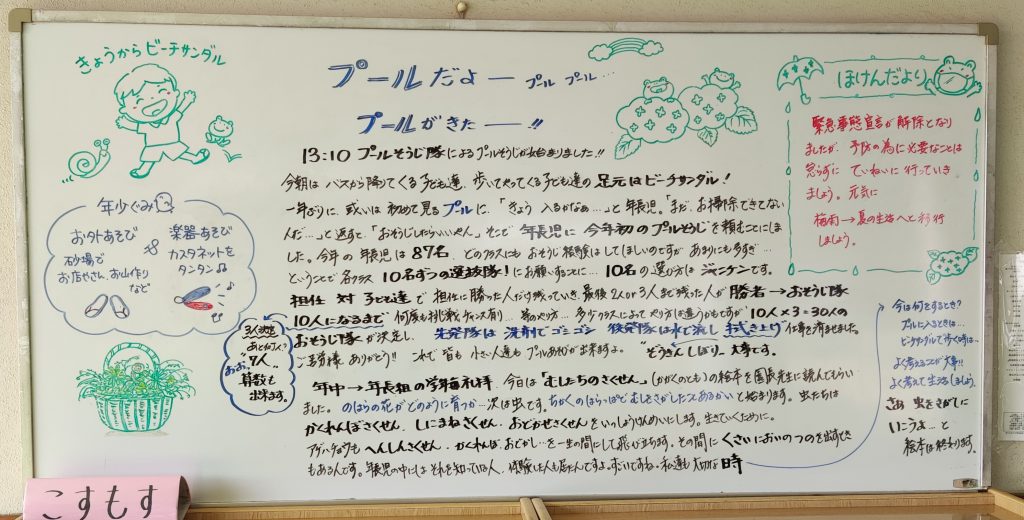 きょうからビーチサンダル
プールだよー プール プール…
プールがきたーー!!
13:10 プールそうじ隊によるプールそうじが始まりました!!
今朝は バスから降りてくる子ども達、歩いてやってくる子ども達の足元はビーチサンダル!
一年ぶりに、或いは初めて見るプールに、「きょう 入るかなぁ…」と年長児。「まだ、お掃除できてない
んだ…」と返すと、「おそうじしたらいいやん」そこで 年長児に今年初のプールそうじを頼むことにし
ました。今年の年長児は87名、どのクラスにもおそうじ経験はしてほしいのですが あまりにも多すぎ…
ということで各クラス 10名ずつの選抜隊!にお願いすることに… 10名の選び方は ジャンケンです。
担任 対 子ども達で 担任に勝った人だけ残っていき、最後 2人か3人まで残った人が 勝者→おそうじ隊
10人になるまで 何度も挑戦チャンス有り… 多少クラスによって やり方は違うかもですが 10人×3=30人の
おそうじ隊が決定し、 先発隊は 洗剤でゴシゴシ 後発隊は水で流し 拭き上げ 仕事を済ませました。
ご苦労様 ありがとう!! これで 皆も 小さい人達も プールあそびが出来ますよ。 “ぞうきんしぼり”大事です。
年中→年長組の学年毎礼拝 今日は「むしたちのさくせん」(かがくのとも)の絵本を園長先生に読んでもらい
ました。 のはらの花がどのように育つか…次は虫です。ちかくのはらっぱでむしをさがしたことあるかい と始まります。虫たちは
かくれんぼさくせん、しにまねさくせん、おどかせさくせんをいっしょうけんめいにします。生きていくために。
へんしんさくせん、かくれんぼ、おどかし…を一生の間にして飛びまわります。その間に くさいにおいのつのを出すとき
もあるんです。年長児の中にはそれを知っている人、経験した人も居たんですよ。すごいですね。私達も大切な時
3人決定
あと何人?
“7人”
おぉ、
算数も
出来ます。
年少ぐみ
お外あそび
砂場で
お店やさん、お山作り
など
楽器あそび
カスタネットを
タンタン♫
ほけんだより
緊急事態宣言が解除となり
ましたが、予防の為に必要なことは
怠らずに ていねいに行っていき
ましょう。元気に
梅雨→夏の生活へと移行
しましょう。
今は何をするとき?
プールに入るときは…
ビーチサンダルで歩く時は…
よく考えることが大事!!
よく考えて生活しましょう。
さあ 虫をさがしに
いこうよ…と
絵本は終わります。
こすもす